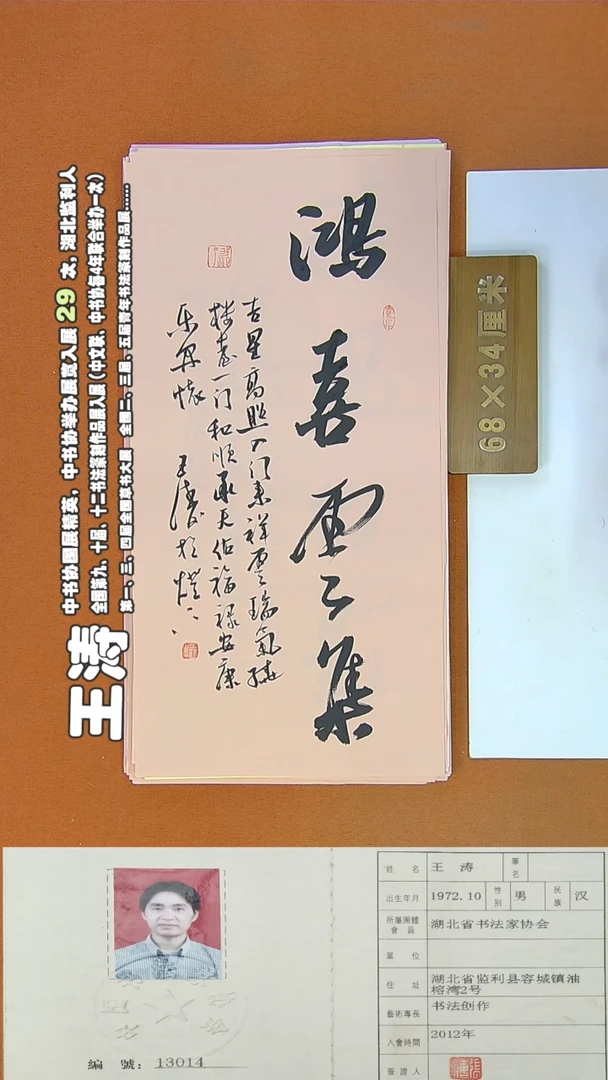 鸿喜云集
吉星高照入门来祥云瑞气绕
楼台一门和顺承天佑福禄安康
乐开怀 王涛
68×34厘米
王涛
中书协国展精英，中书协举办展览入展29次，湖北监利人
全国第九、十届、十二书法篆刻作品展入展（中文联、中书协每4年联合举办一次）
第一、二、四届全国草书大展 全国二、三届、五届青年书法篆刻作品展……
姓名 王涛 筆名
出生年月 1972.10 性别 男 民族 汉
所屬團體會員 湖北省书法家协会
單位
住址 湖北省监利县容城镇油
榕湾2号
藝術專長 书法创作
入會時間 2012年
簽證人
編號：13014